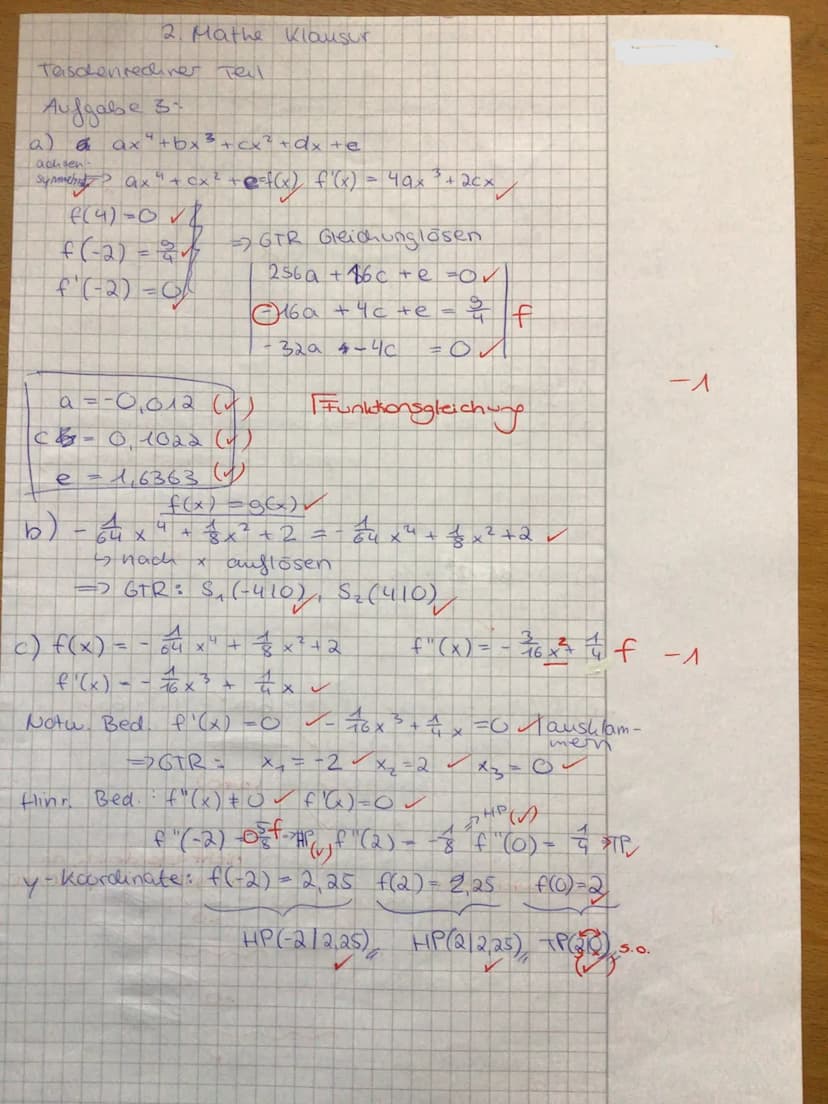 2. Mathe Klausur
Taschenrechner Teil
Aufgabe 3:
a) ax⁴+bx³+cx²+dx+e
achsen-
symmetr. => ax⁴+cx²+e=f(x) f'(x) = 4ax³+2cx ✓
f(4)=0 ✓
f(-2) = 9/4 ✓ => GTR Gleichunglösen
f'(-2) = 0 ✓
256a + 16c + e = 0 ✓
-16a + 4c + e = 9/4 f
-32a + -4c = 0 ✓
-1
a = -0,012 (✓) Funktionsgleichung
c = 0,1022 (✓)
e = 1,6363 (✓)
f(x) = g(x) ✓
b) -1/64 x⁴ + 1/8 x² + 2 = -1/64 x⁴ + 1/8 x² + 2 ✓
↳ nach x auflösen
=> GTR: S₁(-4|0) ✓, S₂(4|0) ✓
c) f(x) = -1/64 x⁴ + 1/8 x² + 2 f''(x) = -3/16 x² + 1/4 f -1
f'(x) = -1/16 x³ + 1/4 x ✓
Notw. Bed. f'(x) = 0 ✓ -1/16 x³ + 1/4 x = 0 ✓ | ausklam-
mern
=> GTR: x₁ = -2 ✓ x₂ = 2 ✓ x₃ = 0 ✓
Hinr. Bed.: f''(x) ≠ 0 ✓ f'(x) = 0 ✓
=> HP (✓)
f''(-2) = 5/8 f => HP (✓) f''(2) = -1/8 f''(0) = 1/4 => TP ✓
y-Koordinate: f(-2) = 2,25 f(2) = 2,25 f(0) = 2 ✓
HP(-2|2,25) ✓ HP(2|2,25) ✓ TP(2|0) (✓) s.o.